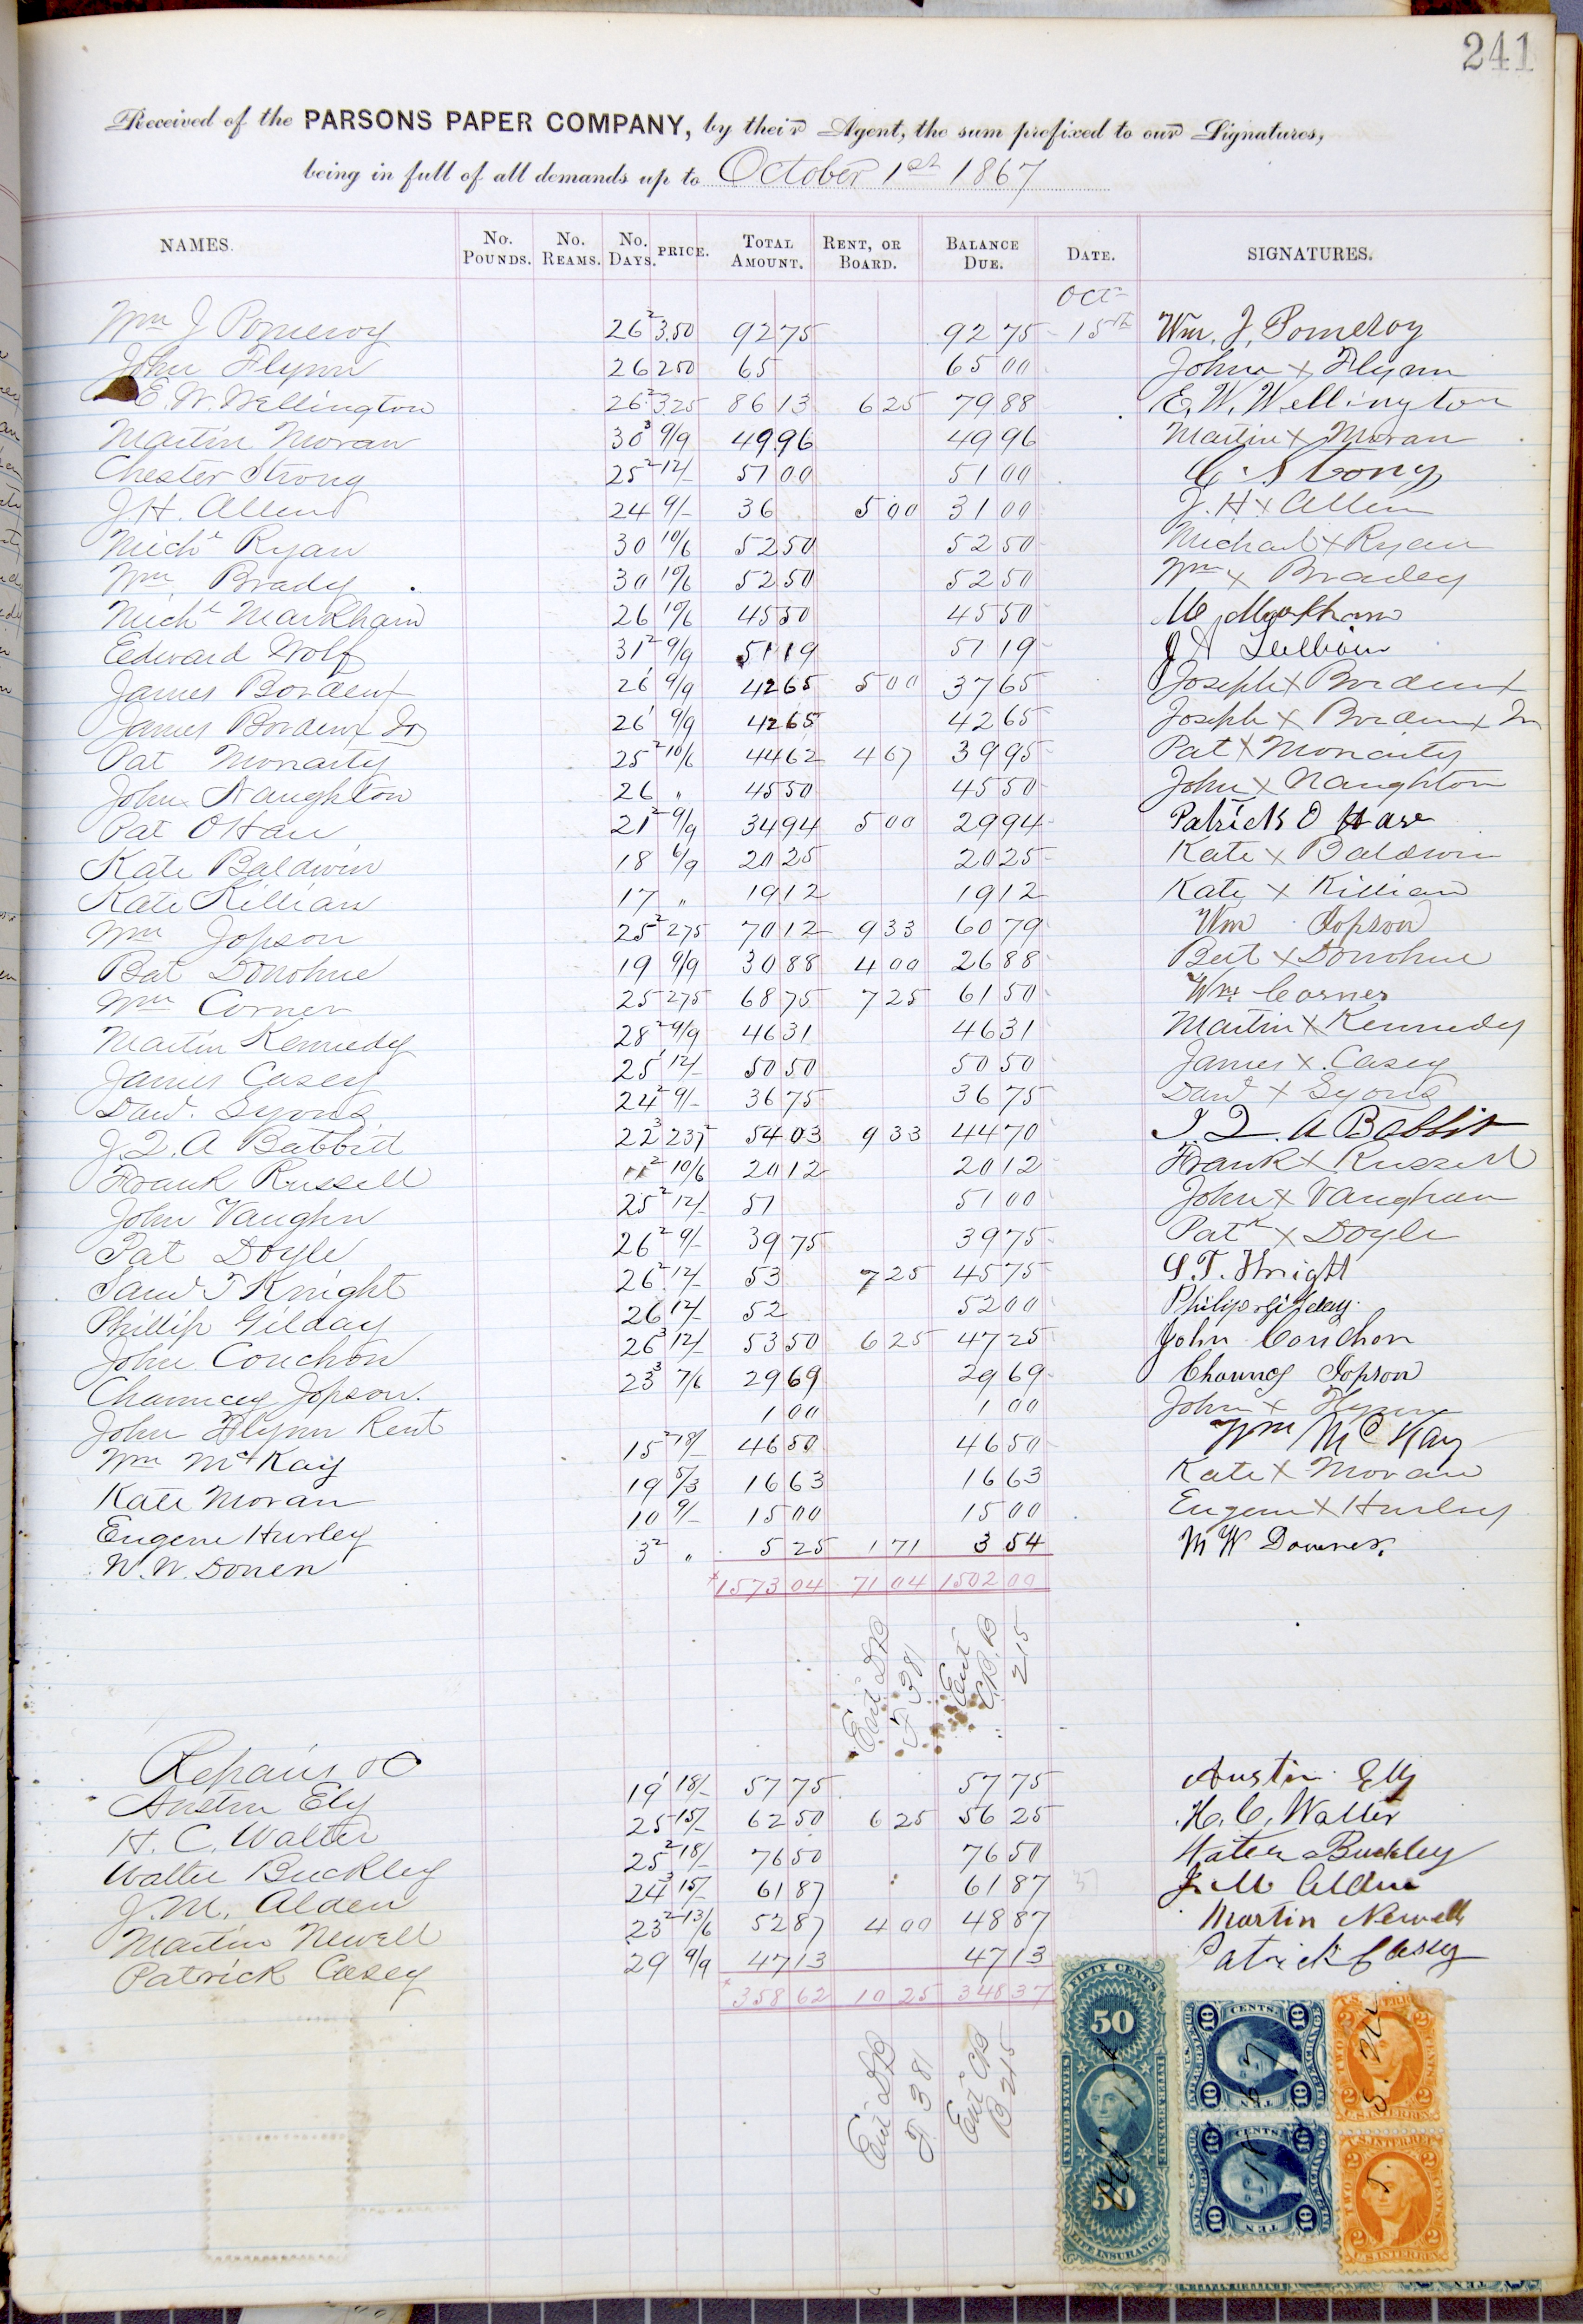 241
Received of the PARSONS PAPER COMPANY, by their Agent, the sum prefixed to our Signatures,
being in full of all demands up to October 1st 1867
NAMES. No. POUNDS. No. REAMS. No. DAYS. PRICE. TOTAL AMOUNT. RENT, OR BOARD. BALANCE DUE. DATE. SIGNATURES.
Oct
Wm J Pomeroy 26² 3.50 92 75 92 75 15th Wm. J. Pomeroy
John Flynn 26 250 65 65 00 John x Flynn
E. W. Wellington 26² 325 86 13 6 25 79 88 E. W. Wellington
Martin Moran 30³ 9/9 49 96 49 96 Martin x Moran
Chester Strong 25² 12/- 51 00 51 00 C. Strong
J. H. Allen 24 9/- 36 5 00 31 00 J. H x Allen
Michl Ryan 30 10/6 52 50 52 50 Michael x Ryan
Wm Brady 30 10/6 52 50 52 50 Wm x Bradey
Michl Markham 26 10/6 45 50 45 50 M Markham
Edward Wolf 31² 9/9 51 19 51 19
James Bordeux 26¹ 9/9 42 65 5 00 37 65 Joseph x Bordeux
James Bordeux Jr 26¹ 9/9 42 65 42 65 Joseph x Bordeux Jr
Pat Moriarty 25² 10/6 44 62 4 67 39 95 Pat x Moriarty
John Naughton 26 " 45 50 45 50 John x Naughton
Pat OHare 21² 9/9 34 94 5 00 29 94 Patrick O Hare
Kate Baldwin 18 6/9 20 25 20 25 Kate x Baldwin
Kate Killian 17 " 19 12 19 12 Kate x Killian
Wm Jopson 25² 275 70 12 9 33 60 79 Wm Jopson
Bat Donohue 19 9/9 30 88 4 00 26 88 Bat x Donohue
Wm Corner 25 275 68 75 7 25 61 50 Wm Corner
Martin Kennedy 28² 9/9 46 31 46 31 Martin x Kennedy
James Casey 25¹ 12/- 50 50 50 50 James x Casey
Davd. Lyons 24² 9/- 36 75 36 75 Davd x Lyons
J. Q. A Babbitt 22³ 237² 54 03 9 33 44 70 J. Q. A Babbit
Frank Russell 11² 10/6 20 12 20 12 Frank x Russell
John Vaughn 25² 12/- 51 51 00 John x Vaughan
Pat Doyle 26² 9/- 39 75 39 75 Patk x Doyle
Saml T Knight 26² 12/- 53 7 25 45 75 S. T. Knight
Phillip Gilday 26 12/- 52 52 00 Philip Gilday
John Couchon 26³ 12/- 53 50 6 25 47 25 John Couchon
Chauncey Jopson. 23³ 7/6 29 69 29 69 Chauncy Jopson
John Flynn Rent 1 00 1 00 John x Flynn
Wm McKay 15² 18/- 46 50 46 50 Wm McKay
Kate Moran 19 5/3 16 63 16 63 Kate x Moran
Eugene Hurley 10 9/- 15 00 15 00 Eugene x Hurley
W. W. Donen 3² " 5 25 1 71 3 54 M W Downer.
1573 04 71 04 1502 00
Ent DB F 381
Ent C.B. B 215
Repairs &C
Austin Ely 19¹ 18/- 57 75 57 75 Austin Ely
H. C. Walter 25 15/- 62 50 6 25 56 25 H. C. Walter
Walter Buckley 25² 18/- 76 50 76 50 Walter Buckley
J. M. Alden 24³ 15/- 61 87 61 87 J. M Alden
Martin Newell 23² 13/6 52 87 4 00 48 87 Martin Newell
Patrick Casey 29 9/9 47 13 47 13 Patrick Casey
358 62 10 25 348 37
Ent DB F 381
Ent CB B 215
FIFTY CENTS
50
UNITED STATES
INTER. REVENUE
50
LIFE INSURANCE
10 CENTS. 10
U.S. INTER. REV.
10 TEN 10
10 CENTS. 10
10 TEN 10
U.S. INTER. REV.
2 2
TWO CENTS
U.S. INTER. REV.
2 2
TWO CENTS
U.S. INTER. REV.